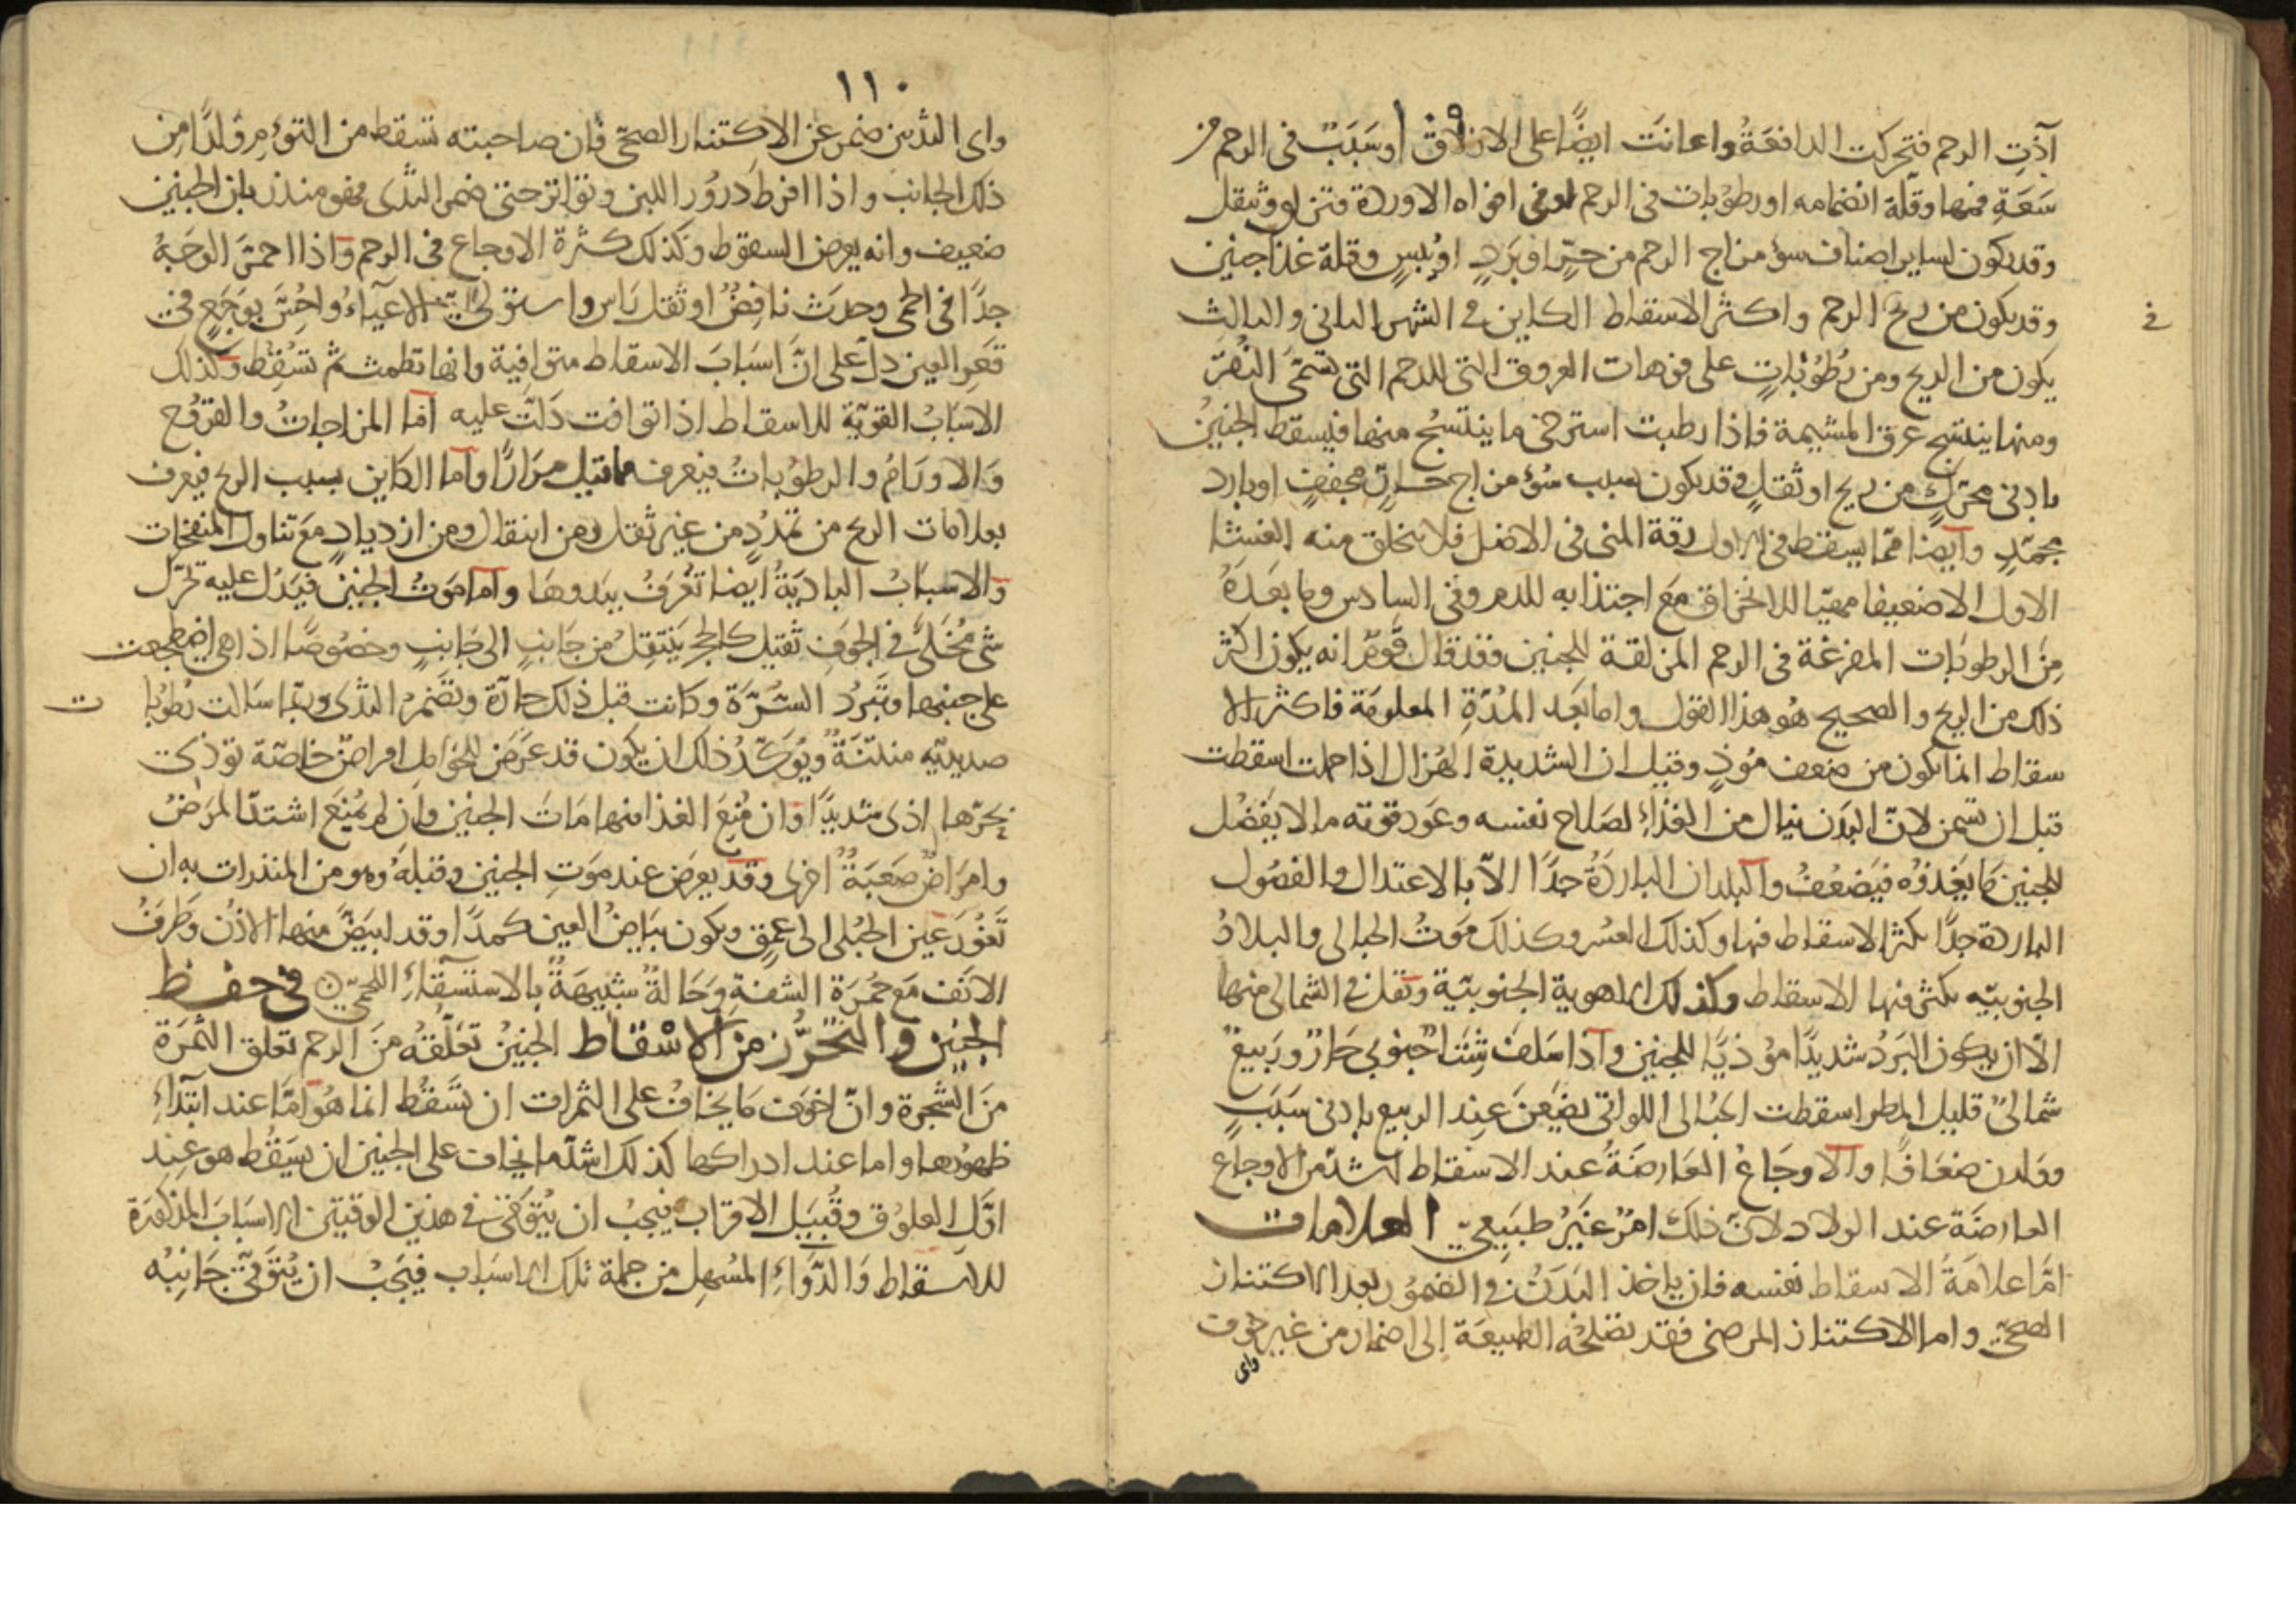 آذت الرحم فتحركت الدافعة واعانت ايضًا على الازلاق او سَبَبٌ فى الرحم من
سَعَةِ فمها وقلّة انضمامه او رطوبات فى الرحم او فى افواه الاوردة فتزلق وتثقل
وقد يكون لساير اصناف سؤ مزاج الرحم من حرٍّ او بَردٍ او يُبسٍ وقلة غذا جنين
وقد يكون من ريح فى الرحم واكثر الاسقاط الكاين فى الشهر الثانى والثالث
يكون من الريح ومن رُطُوبَاتٍ على فوهات العروق التى للرحم التى تسَمَّى النُقرَ
ومنها ينتسج عرق المشيمة فاذا رطبت استرخى ما ينتسج منها فيسقط الجنينُ
بادنى محَرّكٍ من ريح او ثقلٍ وقد يكون بسبب سُؤ مزاج حارٍ مجففٍ او بارد
مجمّدٍ وايضا ممّا يسقط فى الاول رقة المنى فى الاصل فلا يتخلق منه الغشا
الاول الا ضعيفا مهيّا للانخراق مَعَ اجتذابه للدم وفى السادس وما بعدَهُ
مِنَ الرطوبَات المفرغة فى الرحم المزلقة للجنين فقد قال قَومٌ انه يكون اكثر
ذلك من الريح والصحيح هُو هذا القول واما بَعد المُدّةِ المعلومَة فاكثر الا
سقاط انما يكون من ضعف مُوذٍ وقيل ان الشديدة الهُزال اذا حملت اسقطت
قبل ان تسمن لانّ البدَن ينال من الغذَاءِ لصَلاح نفسه وعَود قوته ما لا يَفضُل
للجنين مَا يَغذوُه فيَضعُفُ والبلدان البَاردَةُ جدًّا الاّ بالاعتدال والفصُول
الباردة جدًّا يكثر الاسقاط فيها وكذلك العسُر وكذلك مَوتُ الحبالى والبلادُ
الجنوبيّه يكثر فيها الاسقاط وكذلك الاهوية الجنوبيّة وتقل فى الشمالى منها
الاّ ان يكون البَردُ شديدًا موُذيًا للجنين واذا سَلفَ شتَتاٌ جنوبى حَارٌ ورَبيعٌ
شمالىٌ قليل المطر اسقطت الحبَالى اللواتى يضَعنَ عِند الربيع بادنى سَبَبٍ
وولدن ضعَافًا والاوجَاعُ العَارضَةُ عند الاسقاط اشدّ من الاوجَاع
العارضَة عند الولاد لانّ ذلك امرٌ غَيرُ طبَيِعىٍّ العلامات
امّا علامَةُ الاسقاط نفسه فان ياخذ البَدَنُ فى الضمُور بعد الاكتناز
الصحّى واما الاكتناز المرضى فقد تصلحُه الطبيعَة الى اضمار من غير خوف
واى
١١٠
واى الثديين ضمر عن الاكتناز الصحّى فان صاحبته تسقط من التوءم ولدًا مِن
ذلك الجانب واذا افرط درُورُ اللبن وتواتر حتى ضمر الثدى فهو منذر بان الجنين
ضعيف وانه يعرض السقوط وكذلك كثرة الاوجاع فى الرحم واذا احمَرَّ الوَجهُ
جدًّا فى الحمى وحدَثَ نافِضٌ او ثقل رَاس واستولى الاعيَاءُ واحِسَّ بوَجَعٍ فى
قعَرِ العين دلّ على انَّ اسبَابَ الاسقاط متوافية وانها تطمث ثم تسُقِط وكذلك
الاسبَابُ القويّة للاسقاط اذا توافت دَلتَّ عليه امّا المزاجاتُ والقرُوح
وَالاورَامُ والرطوبَاتُ فيعرف ما قيل مرَارًا واما الكاين بسبب الريح فيعرف
بعلامات الريح من تمدُدٍ من غير ثقل ومن انتقال ومن ازديادٍ مَع تناول المنفخات
والاسبَابُ البَاديَةُ ايضا تعُرَفُ ببَدوهَا وامّا مَوتُ الجنين فيَدُل عليه تحرّك
شى مُخَلىًّ فى الجوَف ثقيل كالحجر يَنتقِلُ من جَانبٍ الى جَانبٍ وخصُوصًا اذا هى اضطجعت
على جنبها وتَبردُ السّرّة وكانت قبل ذلك حارّة وتضمُر الثدى وربّما سَالت رُطوبات
صديديّه منتنَةٌ ويُوكّدُ ذلك ان يكون قد عرَضَ للحَوامِل امراضٌ خاصّة توذى
بحرّها اذى شديدًا وان مُنِعَ الغذا منها مَاتَ الجنين وان لم يُمنَع اشتدّ المرَضُ
وامرَاضٌ صَعبَةٌ اخرى وقد يعرض عند مَوتِ الجنين وقبلَهُ وهو من المنذرات به ان
تَغوُرَ عَين الحبُلى الى عمِق ويكون بيَاضُ العين كمدًا وقد ابيَضَّ منها الاذُن وَطرَفُ
الانَف مَع حمُرَة الشفةِ وحَالةٌ شبيهةٌ بالاستسقاءِ اللحمىّ فى حفظ
الجنين والتحرُّز من الاسْقاط الجنينُ تعَلّقُهُ منَ الرحم تعلق الثمرَة
مِنَ الشّجرة وانّ اخوَف مَا يخافُ على الثمرات ان تسَقُط انما هُو امّا عند ابتِدَاءِ
ظهورُها واما عند ادراكها كذلك اشدّ ما يخاف على الجنين ان يَسقُط هو عند
اوَّل العلُوق وقُبيَل الاقراب فيجبُ ان يُتوَقّى فى هذين الوقتين الاسبَابَ المذكورَة
للاسقاط والدَّوَاءُ المسُهِل من جملة تلك الاسبَاب فيَجبُ ان يُتوَقىَّ جَانِبُه